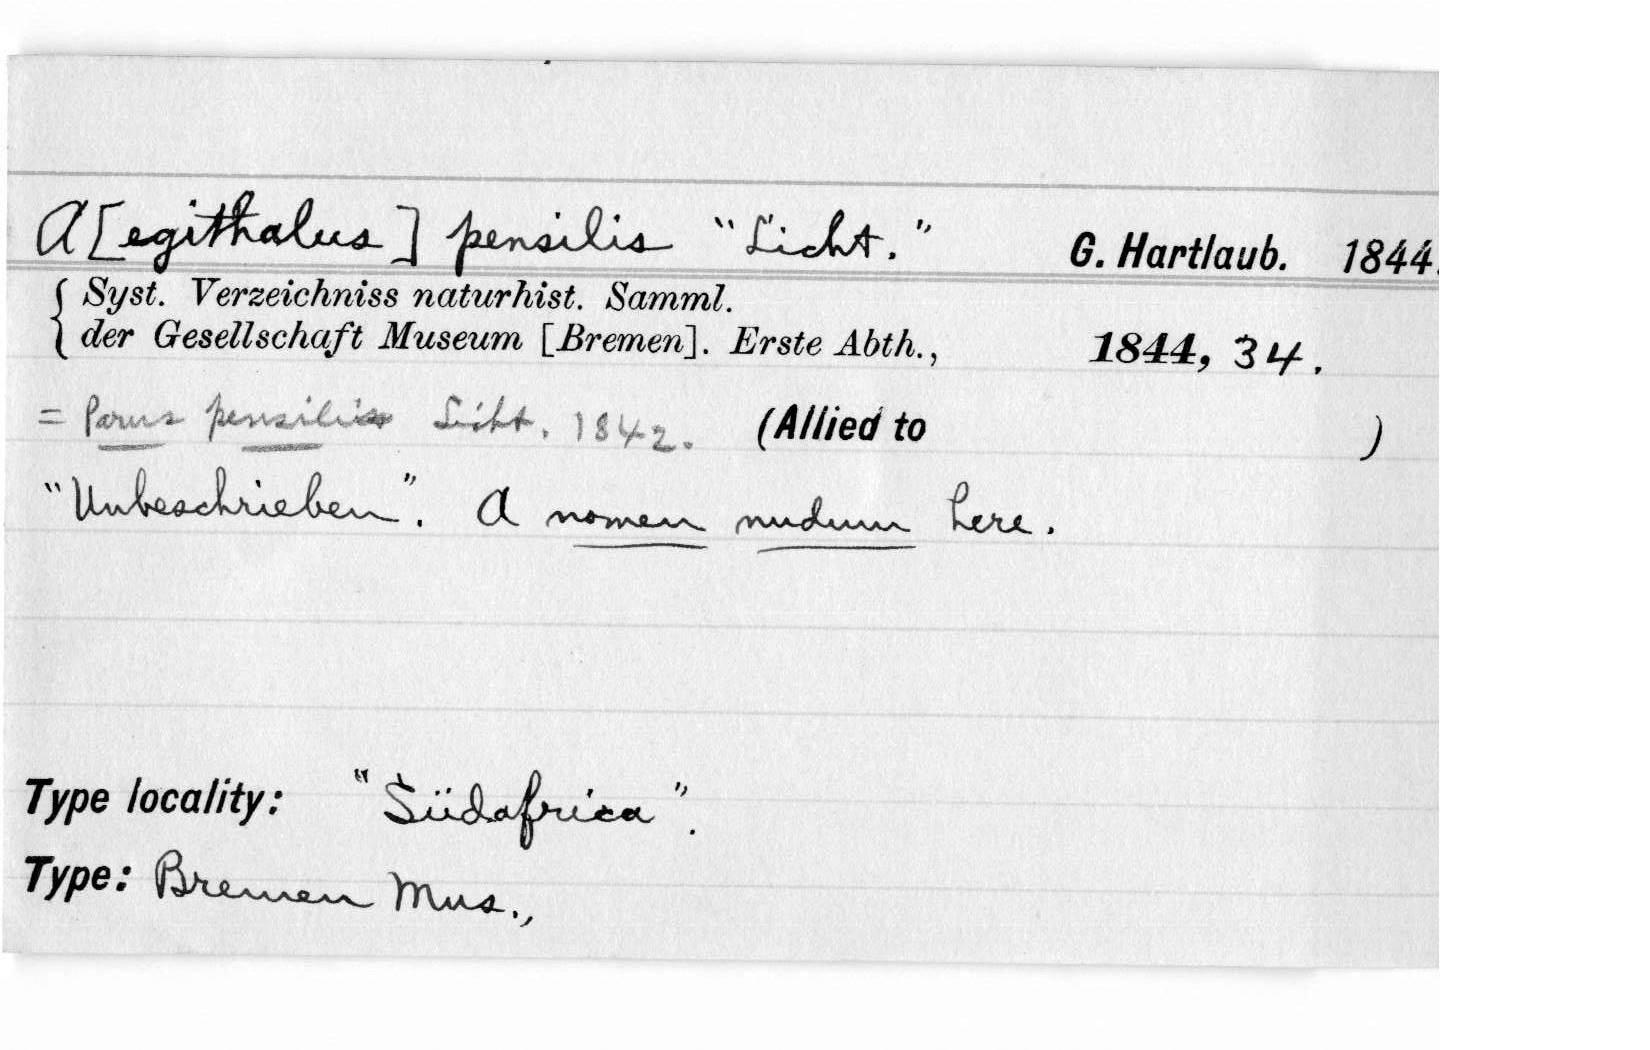 A[egithalus] pensilis "Licht." G. Hartlaub. 1844.
{ Syst. Verzeichniss naturhist. Samml.
der Gesellschaft Museum [Bremen]. Erste Abth., 1844, 34.
= Parus pensilis Licht. 1842. (Allied to )
"Unbeschrieben". A nomen nudum here.
Type locality: "Südafrica".
Type: Bremen Mus.,